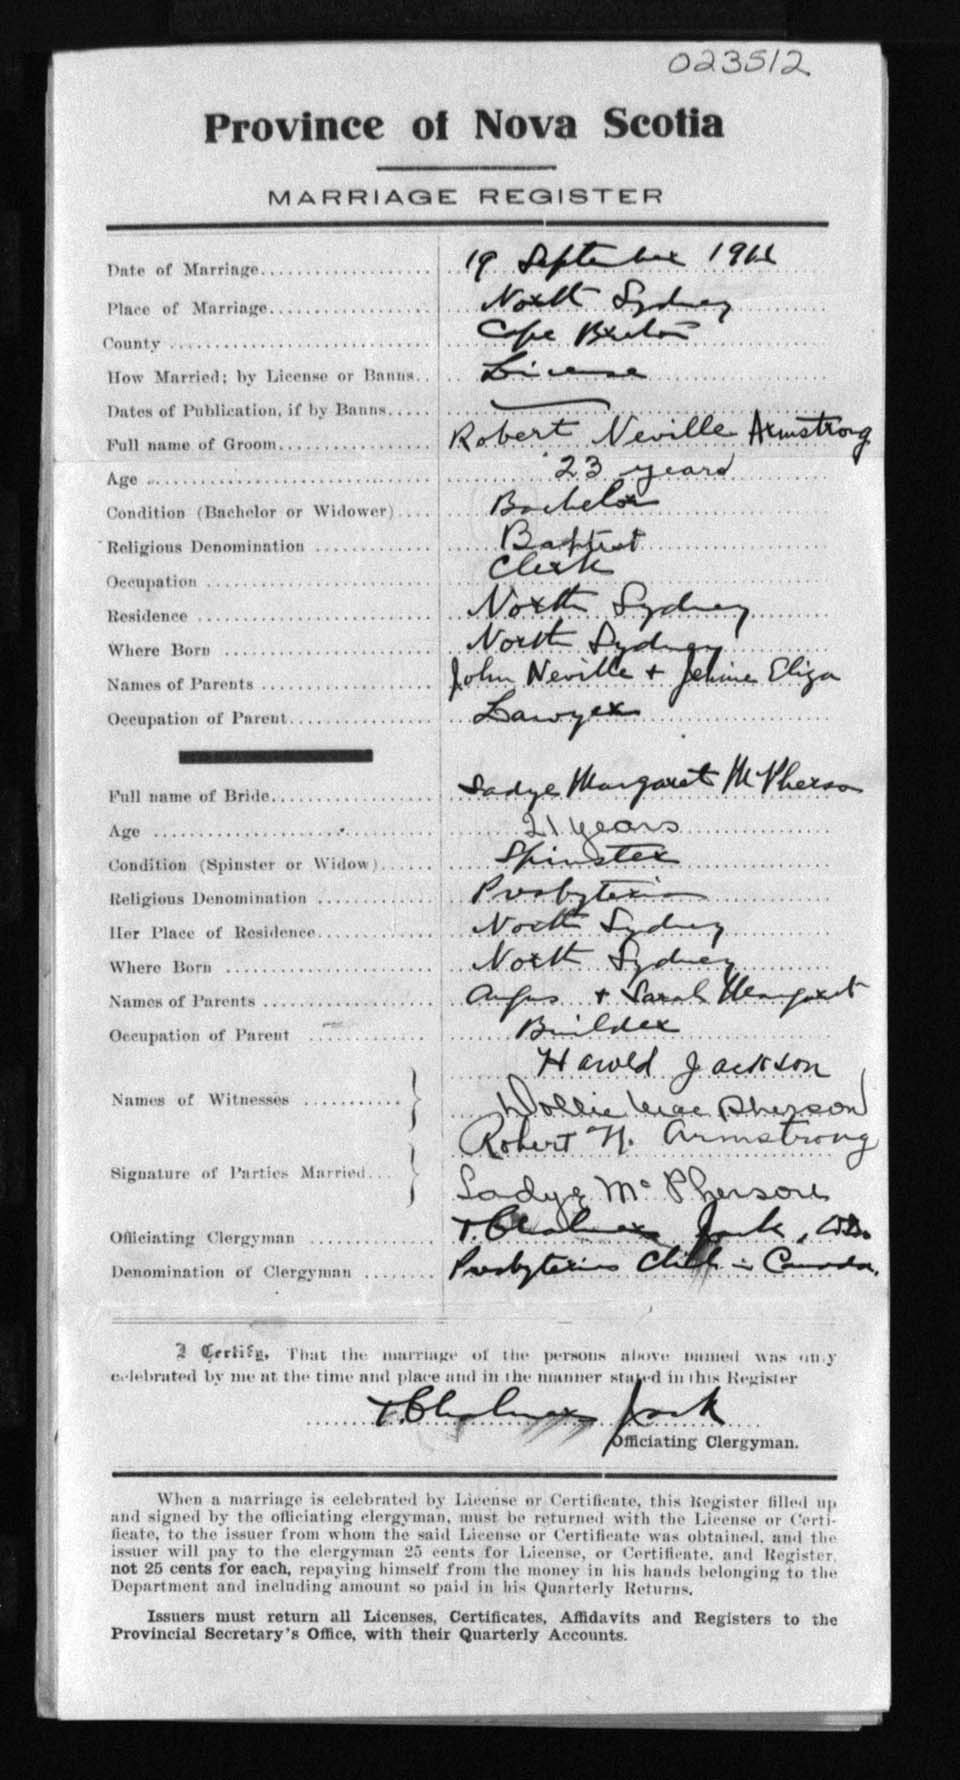 023512
Province of Nova Scotia
MARRIAGE REGISTER
Date of Marriage 19 September
Place of Marriage North Sydney
County Cape Breton
How Married; by License or Banns License
Dates of Publication, if by Banns
Full name of Groom Robert Neville Armstrong
Age 23 years
Condition (Bachelor or Widower) Bachelor
Religious Denomination Baptist
Occupation Clerk
Residence North Sydney
Where Born North Sydney
Names of Parents John Neville + Eliza
Occupation of Parent Lawyer
Full name of Bride Sadye Margaret McPherson
Age 21 years
Condition (Spinster or Widow) Spinster
Religious Denomination Presbyterian
Her Place of Residence North Sydney
Where Born North Sydney
Names of Parents Angus + Sarah Margaret
Occupation of Parent Builder
Harold Jackson
Names of Witnesses
Dollie MacPherson
Robert N. Armstrong
Signature of Parties Married
Sadye McPherson
Officiating Clergyman T. Chalmers Jack, D.D.
Denomination of Clergyman Presbyterian Church in Canada.
I Certify, That the marriage of the persons above named was only
celebrated by me at the time and place and in the manner stated in this Register
T. Chalmers Jack
Officiating Clergyman.
When a marriage is celebrated by License or Certificate, this Register filled up
and signed by the officiating clergyman, must be returned with the License or Certi-
ficate, to the issuer from whom the said License or Certificate was obtained, and the
issuer will pay to the clergyman 25 cents for License, or Certificate, and Register,
not 25 cents for each, repaying himself from the money in his hands belonging to the
Department and including amount so paid in his Quarterly Returns.
Issuers must return all Licenses, Certificates, Affidavits and Registers to the
Provincial Secretary's Office, with their Quarterly Accounts.